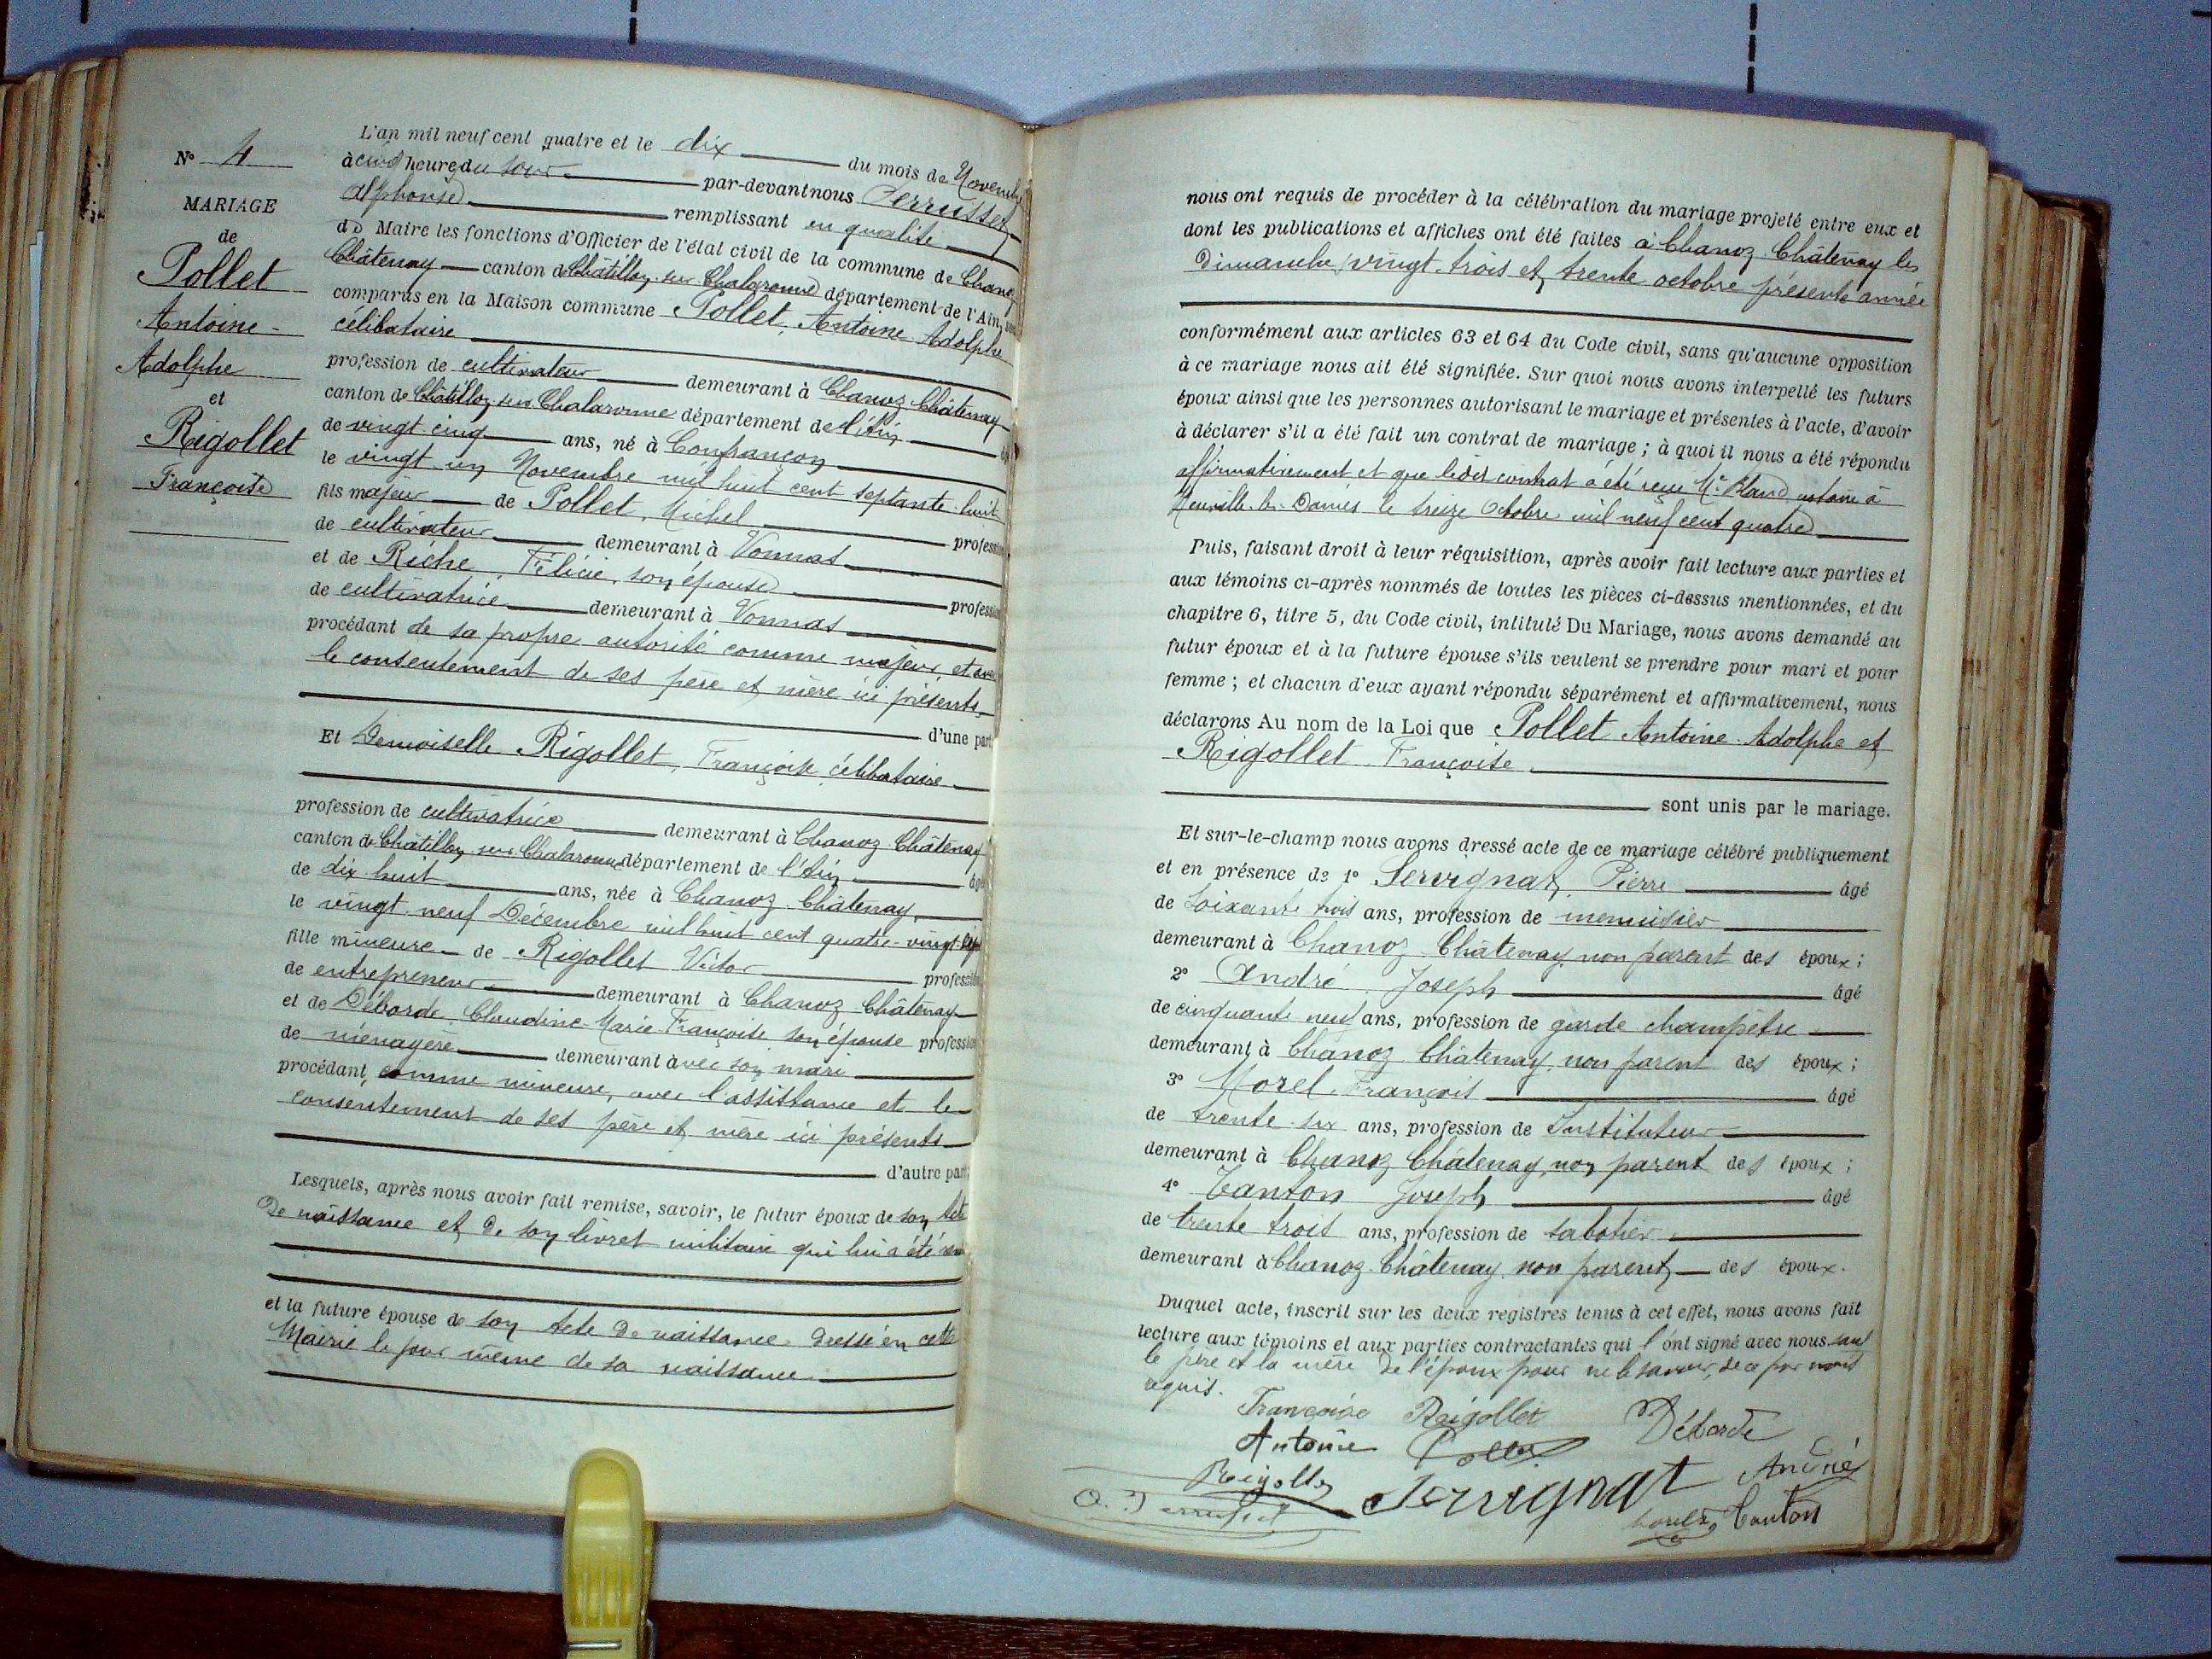 N° 4
MARIAGE
de
Pollet
Antoine-
Adolphe
et
Rigollet
Françoise
L'an mil neuf cent quatre et le dix du mois de Novembre
à cinq heures du soir par-devant nous Perrusset
Alphonse remplissant en qualité
de Maire les fonctions d'Officier de l'état civil de la commune de Chanoz
Châtenay canton de Châtillon sur Chalaronne département de l'Ain, sont
comparus en la Maison commune Pollet, Antoine Adolphe
célibataire
profession de cultivateur demeurant à Chanoz Châtenay
canton de Châtillon sur Chalaronne département de l'Ain
de vingt cinq ans, né à Confrançon
le vingt un Novembre mil huit cent septante huit
fils majeur de Pollet, Michel profession
de cultivateur demeurant à Vonnas
et de Riche, Félicie, son épouse profession
de cultivatrice demeurant à Vonnas
procédant de sa propre autorité comme majeur, et avec
le consentement de ses père et mère ici présents
d'une part
Et Demoiselle Rigollet, Françoise célibataire
profession de cultivatrice demeurant à Chanoz Châtenay
canton de Châtillon sur Chalaronne département de l'Ain âgée
de dix huit ans, née à Chanoz Châtenay,
le vingt neuf Décembre mil huit cent quatre-vingt
fille mineure de Rigollet Victor profession
de entrepreneur demeurant à Chanoz Châtenay
et de Déborde Claudine Marie Françoise son épouse profession
de ménagère demeurant avec son mari
procédant comme mineure, avec l'assistance et le
consentement de ses père et mère ici présents
d'autre part,
Lesquels, après nous avoir fait remise, savoir, le futur époux de son Acte
de naissance et de son livret militaire qui lui a été rendu
et la future épouse de son Acte de naissance dressé en cette
Mairie le jour même de sa naissance.
nous ont requis de procéder à la célébration du mariage projeté entre eux et
dont les publications et affiches ont été faites à Chanoz Châtenay les
Dimanche vingt-trois et trente octobre présente année
conformément aux articles 63 et 64 du Code civil, sans qu'aucune opposition
à ce mariage nous ait été signifiée. Sur quoi nous avons interpellé les futurs
époux ainsi que les personnes autorisant le mariage et présentes à l'acte, d'avoir
à déclarer s'il a été fait un contrat de mariage ; à quoi il nous a été répondu
affirmativement et que ledit contrat a été reçu Me Bland notaire à
Neuville-les-Dames le treize Octobre mil neuf cent quatre
Puis, faisant droit à leur réquisition, après avoir fait lecture aux parties et
aux témoins ci-après nommés de toutes les pièces ci-dessus mentionnées, et du
chapitre 6, titre 5, du Code civil, intitulé Du Mariage, nous avons demandé au
futur époux et à la future épouse s'ils veulent se prendre pour mari et pour
femme ; et chacun d'eux ayant répondu séparément et affirmativement, nous
déclarons Au nom de la Loi que Pollet Antoine Adolphe et
Rigollet Françoise
sont unis par le mariage.
Et sur-le-champ nous avons dressé acte de ce mariage célébré publiquement
et en présence de 1° Servignat, Pierre âgé
de Soixante trois ans, profession de menuisier
demeurant à Chanoz Châtenay non parent des époux ;
2° André Joseph âgé
de cinquante neuf ans, profession de garde champêtre
demeurant à Chanoz Châtenay, non parent des époux ;
3° Morel François âgé
de trente six ans, profession de Instituteur
demeurant à Chanoz Châtenay, non parent des époux ;
4° Tanton Joseph âgé
de trente trois ans, profession de sabotier
demeurant à Chanoz Châtenay non parent des époux.
Duquel acte, inscrit sur les deux registres tenus à cet effet, nous avons fait
lecture aux témoins et aux parties contractantes qui l'ont signé avec nous sauf
le père et la mère de l'époux pour ne le savoir, de ce par nous
requis.
Françoise Rigollet Déborde
Antoine Pollet
Rigollet Servignat André
A. Perrusset Tanton